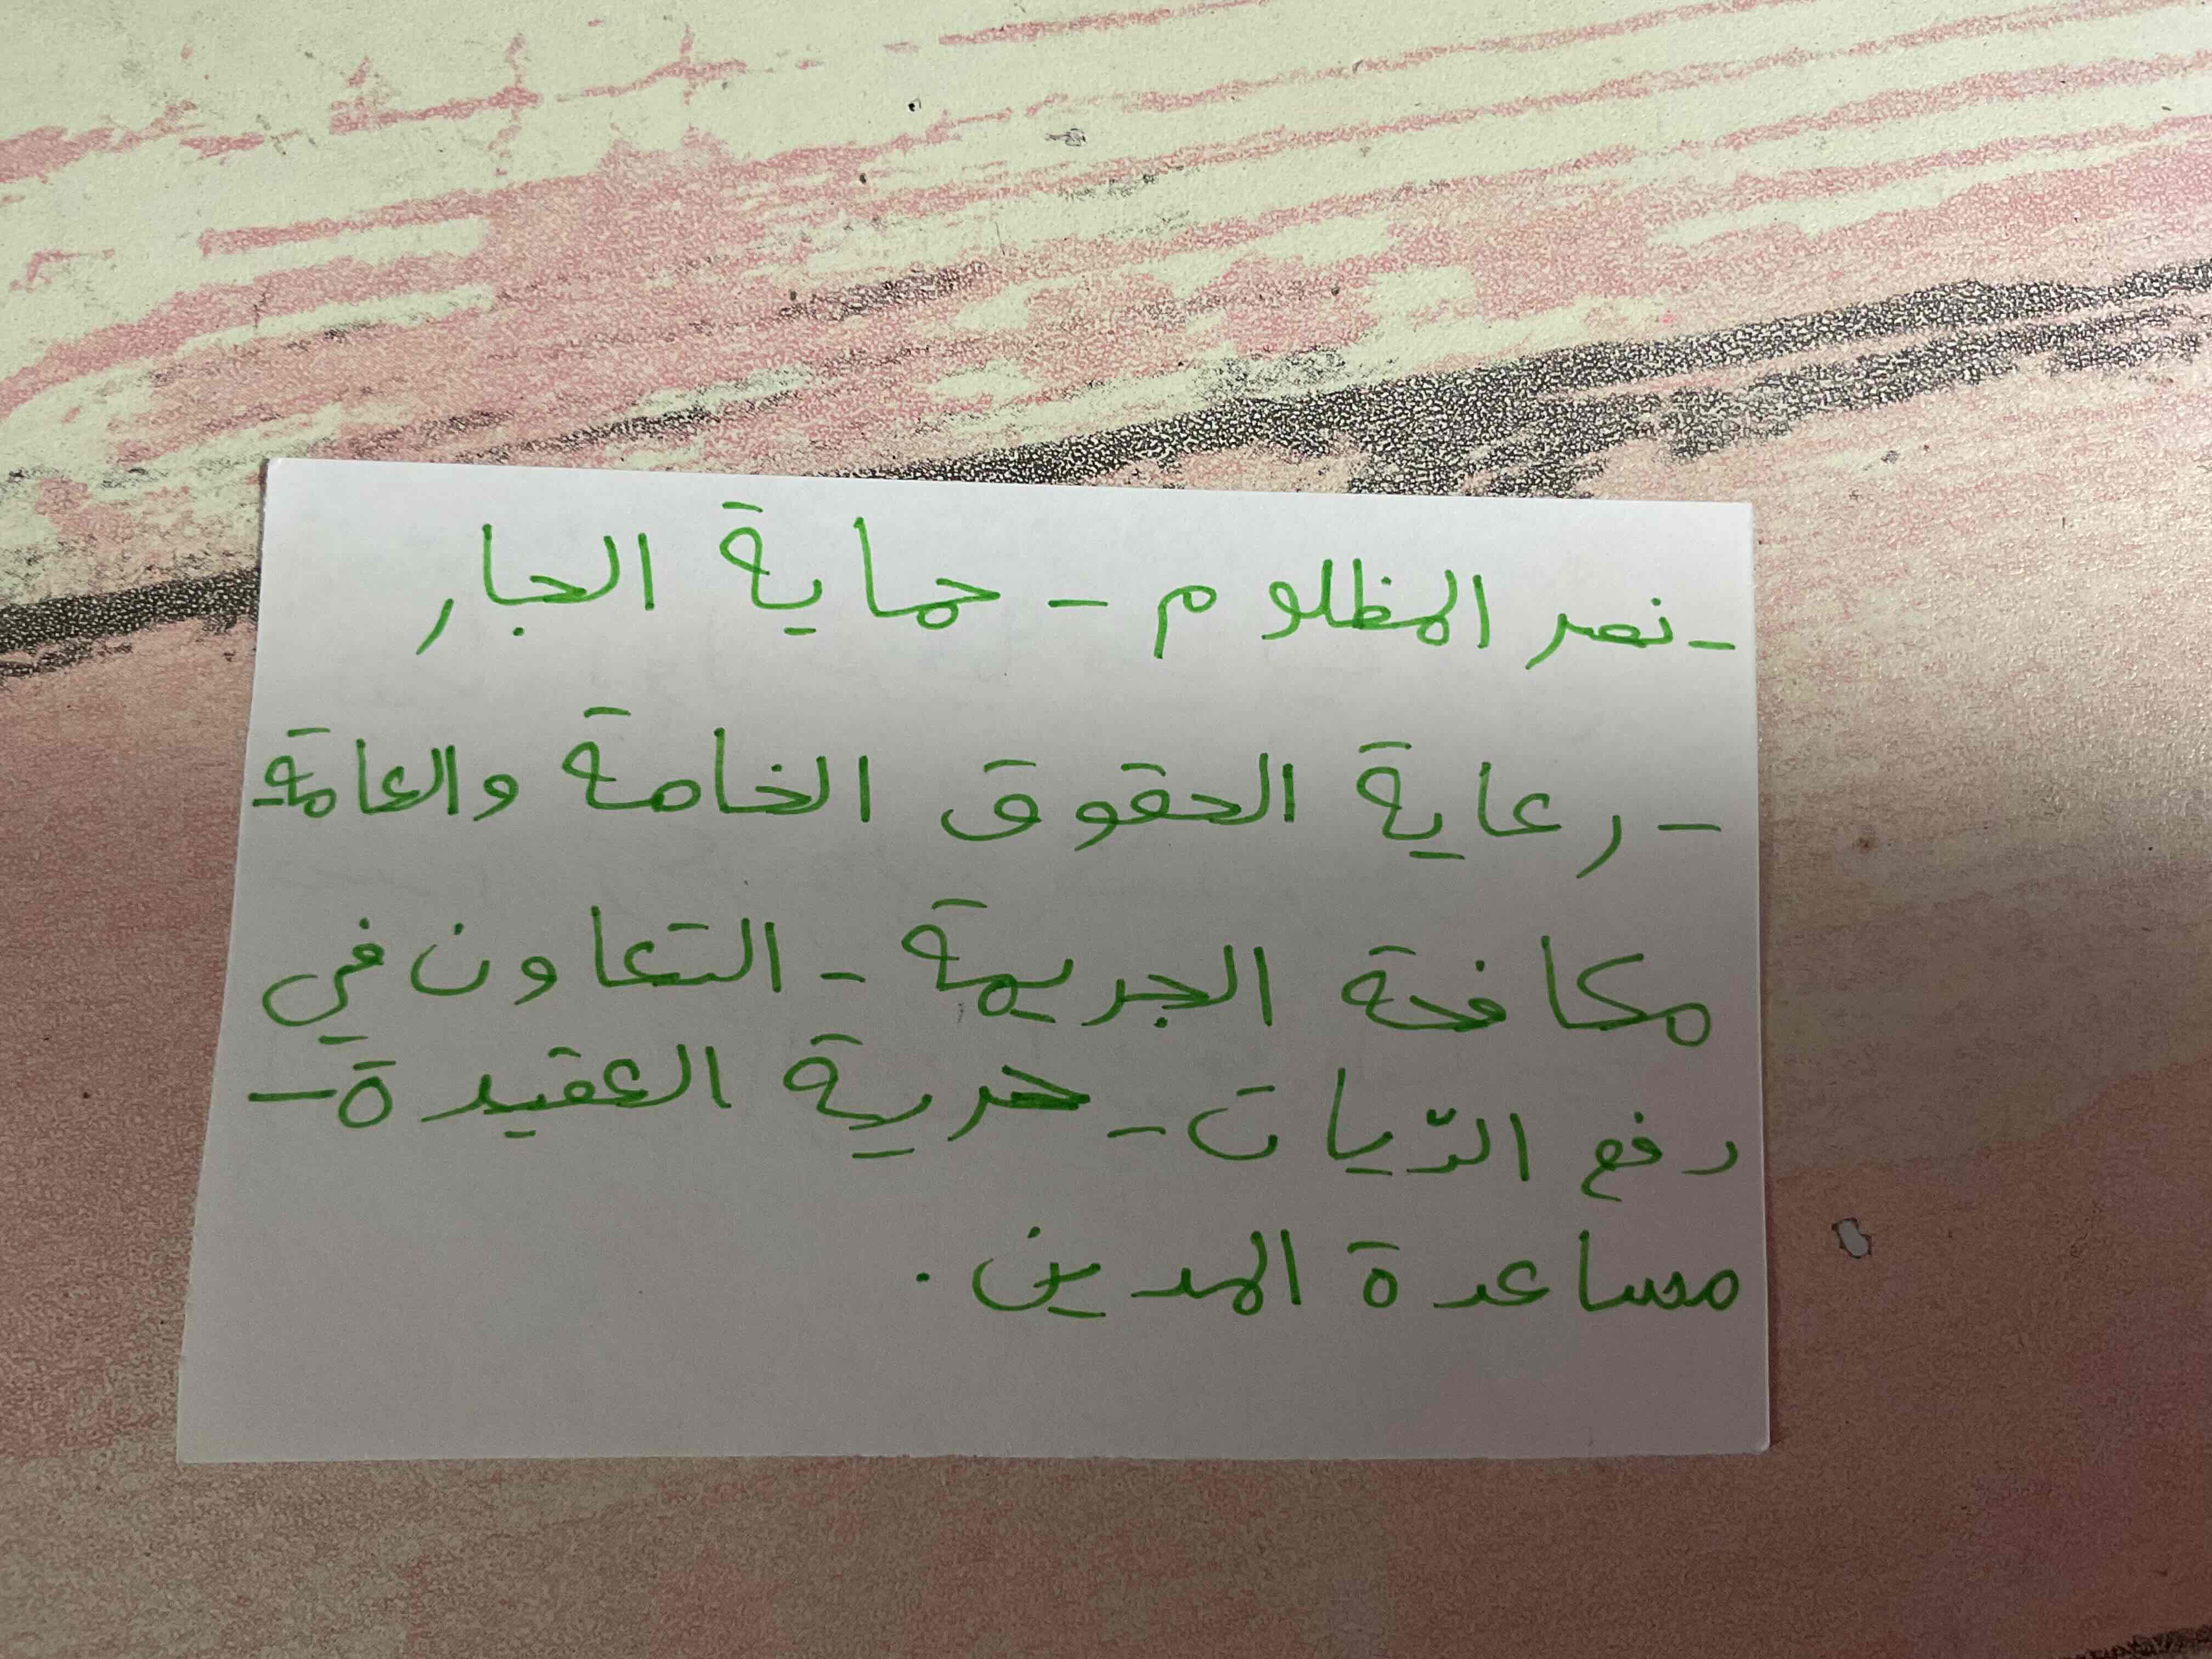 - نصر المظلوم - حماية الجار
- رعاية الحقوق الخاصة والعامة -
مكافحة الجريمة - التعاون في
دفع الدّيات - حرية العقيدة -
مساعدة المدين .